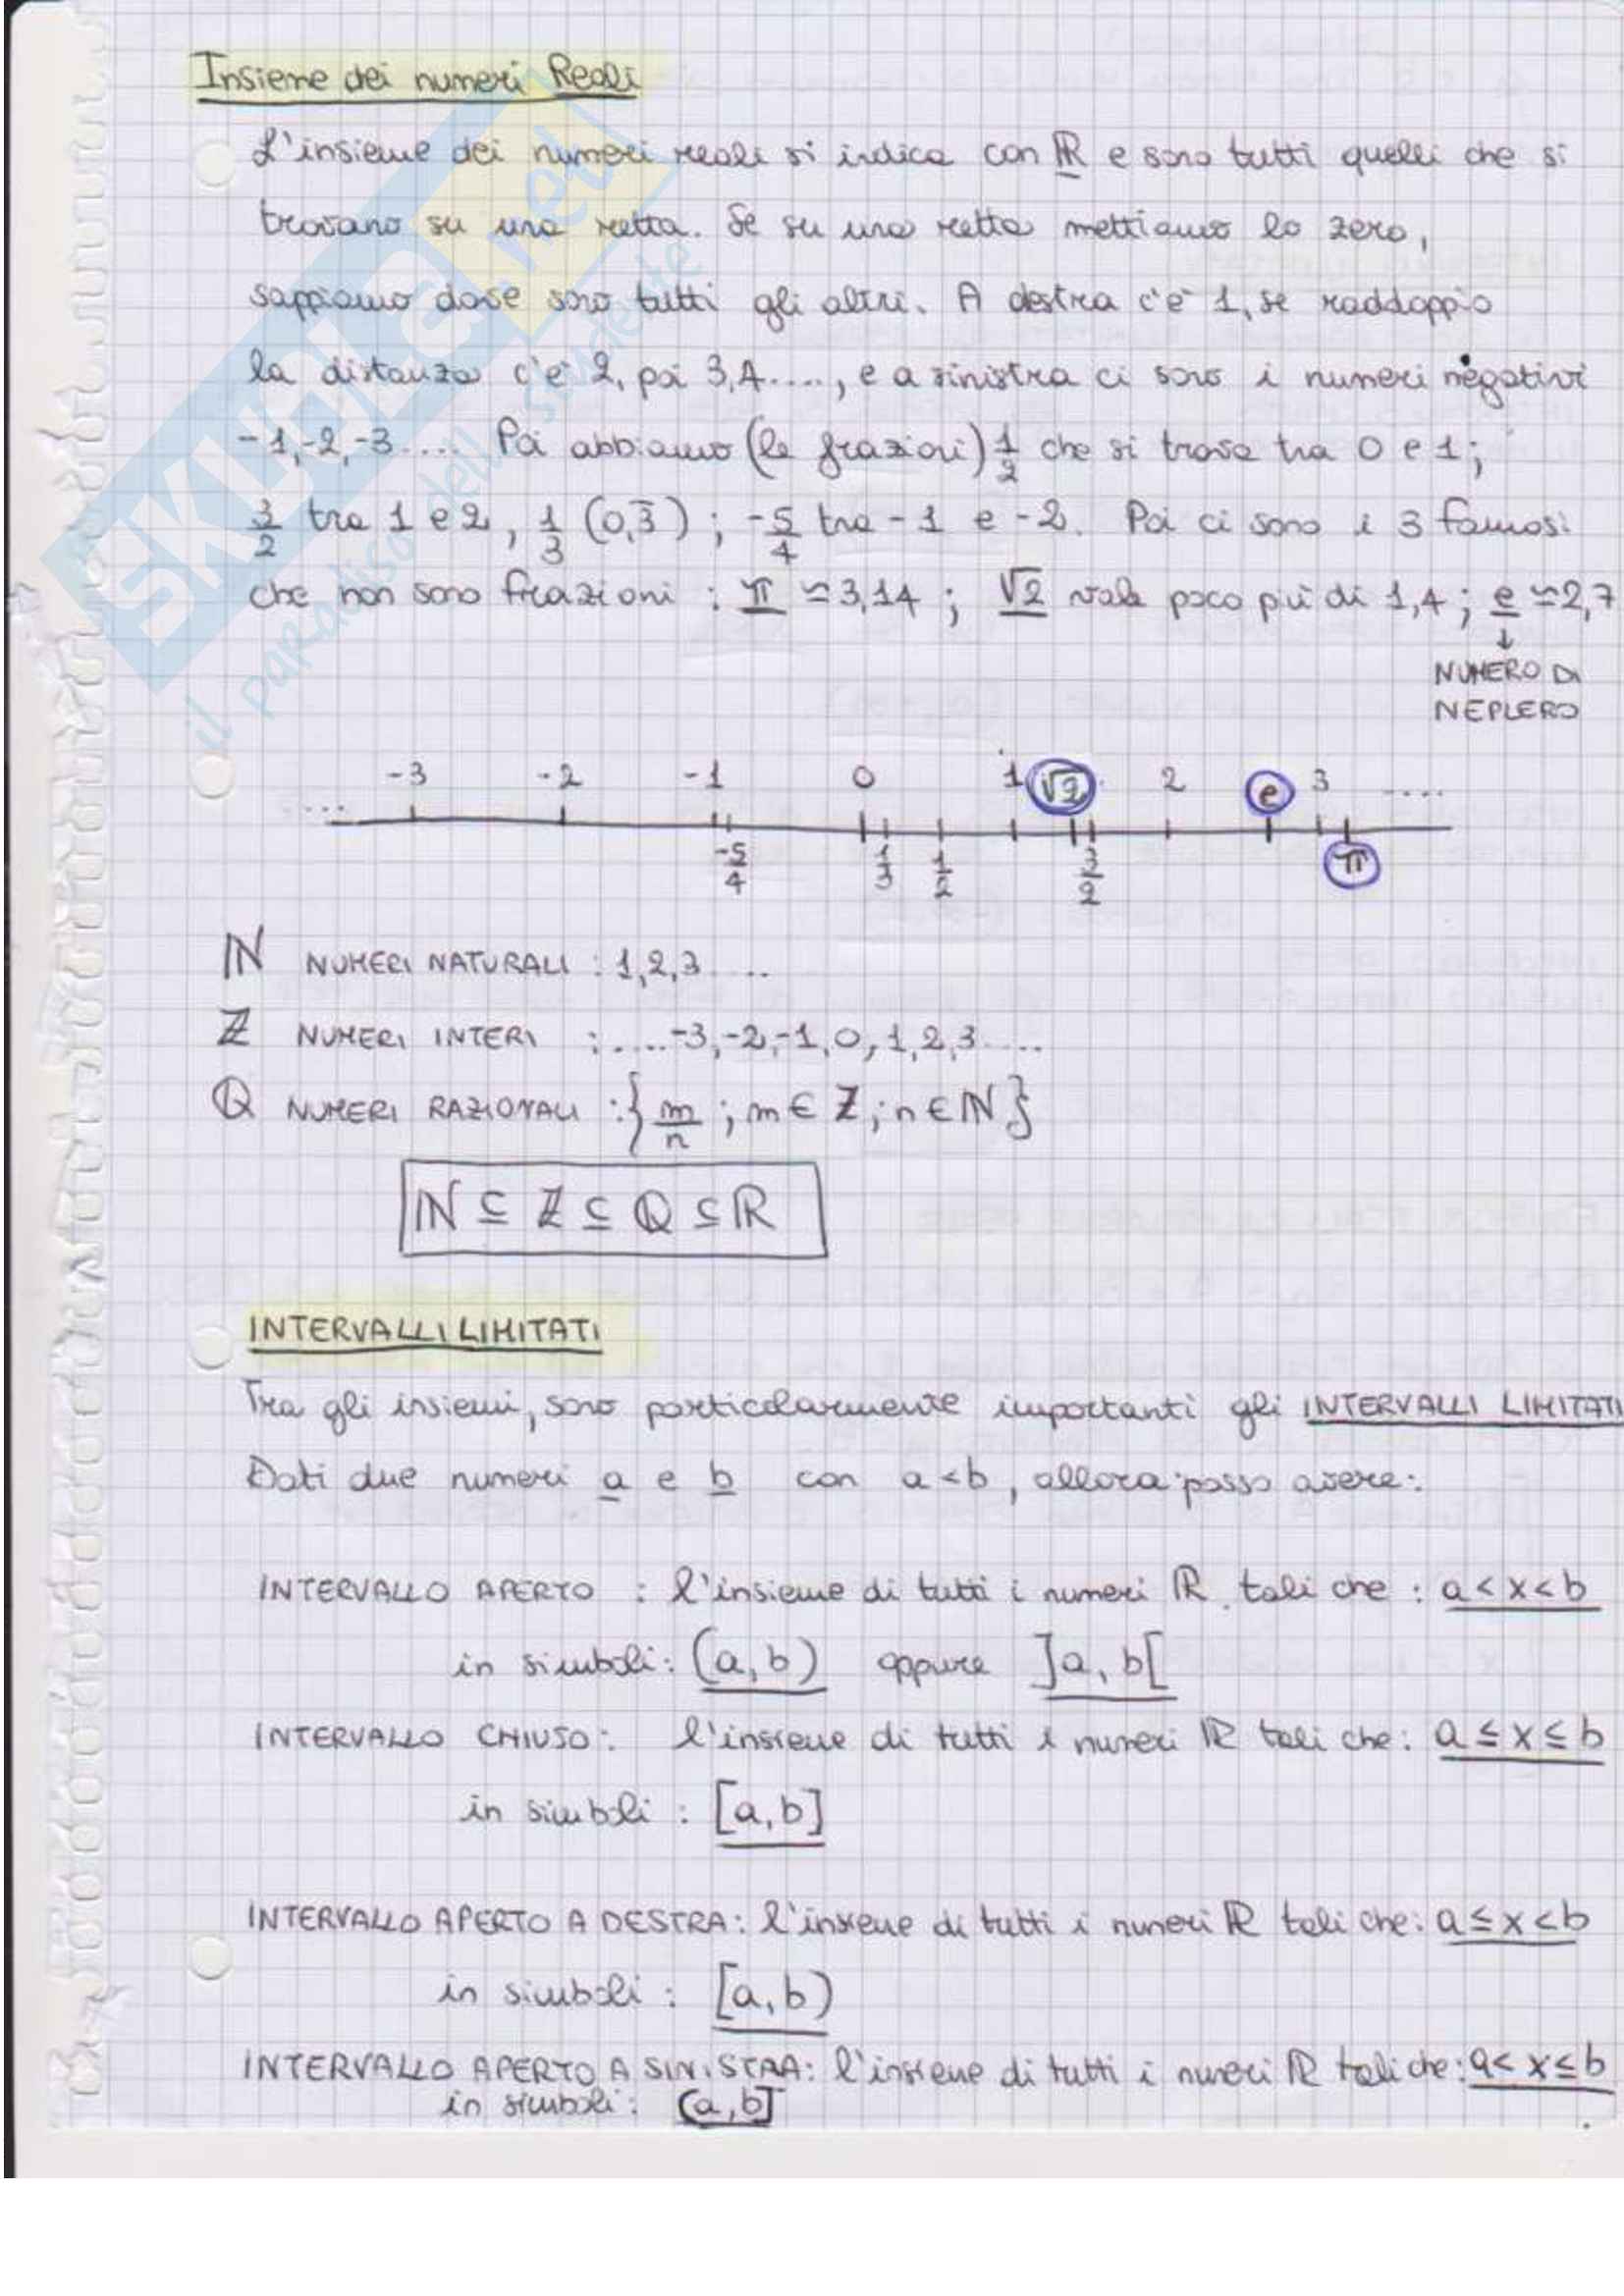 Insieme dei numeri Reali
L'insieme dei numeri reali si indica con ℝ e sono tutti quelli che si
trovano su una retta. Se su una retta mettiamo lo zero,
sappiamo dove sono tutti gli altri. A destra c'è 1, se raddoppio
la distanza c'è 2, poi 3,4...., e a sinistra ci sono i numeri negativi
-1,-2,-3.... Poi abbiamo (le frazioni) 1/2 che si trova tra 0 e 1;
3/2 tra 1 e 2, 1/3 (0,3̅); -5/4 tra -1 e -2. Poi ci sono i 3 famosi
che non sono frazioni : π ≃ 3,14 ; √2 vale poco più di 1,4 ; e ≃ 2,7
↓
NUMERO DI
NEPLERO
-3 -2 -1 0 1 √2 2 e 3 ....
....
-5/4 1/3 1/2 3/2 π
ℕ NUMERI NATURALI : 1,2,3....
ℤ NUMERI INTERI : ....-3,-2,-1,0,1,2,3....
ℚ NUMERI RAZIONALI : {m/n ; m ∈ ℤ ; n ∈ ℕ}
ℕ ⊆ ℤ ⊆ ℚ ⊆ ℝ
INTERVALLI LIMITATI
Tra gli insiemi, sono particolarmente importanti gli INTERVALLI LIMITATI
Dati due numeri a e b con a<b, allora posso avere:
INTERVALLO APERTO : l'insieme di tutti i numeri ℝ tali che : a < x < b
in simboli: (a,b) oppure ]a, b[
INTERVALLO CHIUSO: l'insieme di tutti i numeri ℝ tali che: a ≤ x ≤ b
in simboli : [a,b]
INTERVALLO APERTO A DESTRA: l'insieme di tutti i numeri ℝ tali che: a ≤ x < b
in simboli : [a,b)
INTERVALLO APERTO A SINISTRA: l'insieme di tutti i numeri ℝ tali che: a < x ≤ b
in simboli: (a,b]
SKUOLA.net
il paradiso dello studente